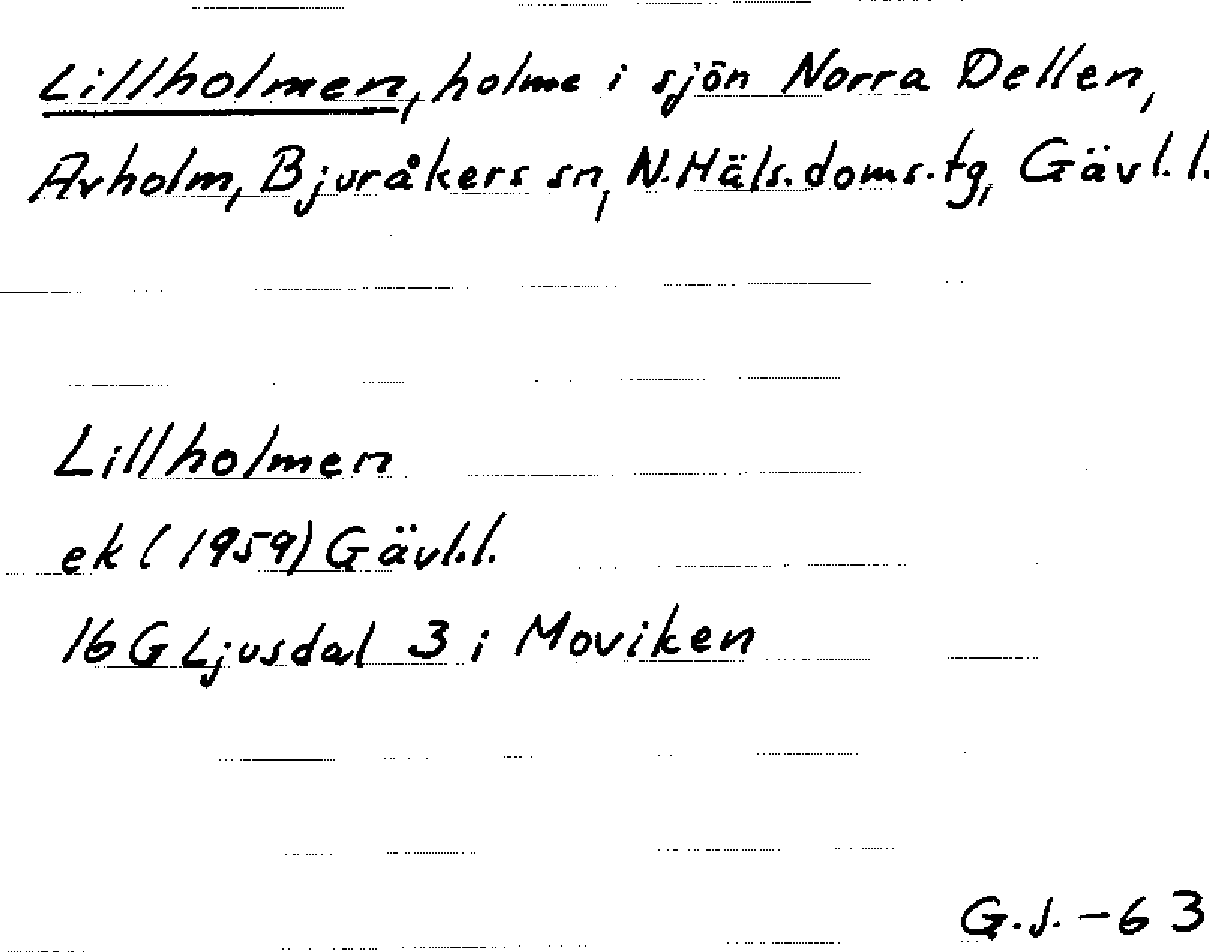 Lillholmen, holme i sjön Norra Dellen,
Avholm, Bjuråkers sn, N.Häls.doms.tg, Gävl.l.
Lillholmen
ek (1959) Gävl.l.
16 G Ljusdal 3 i Moviken
G.J. -63